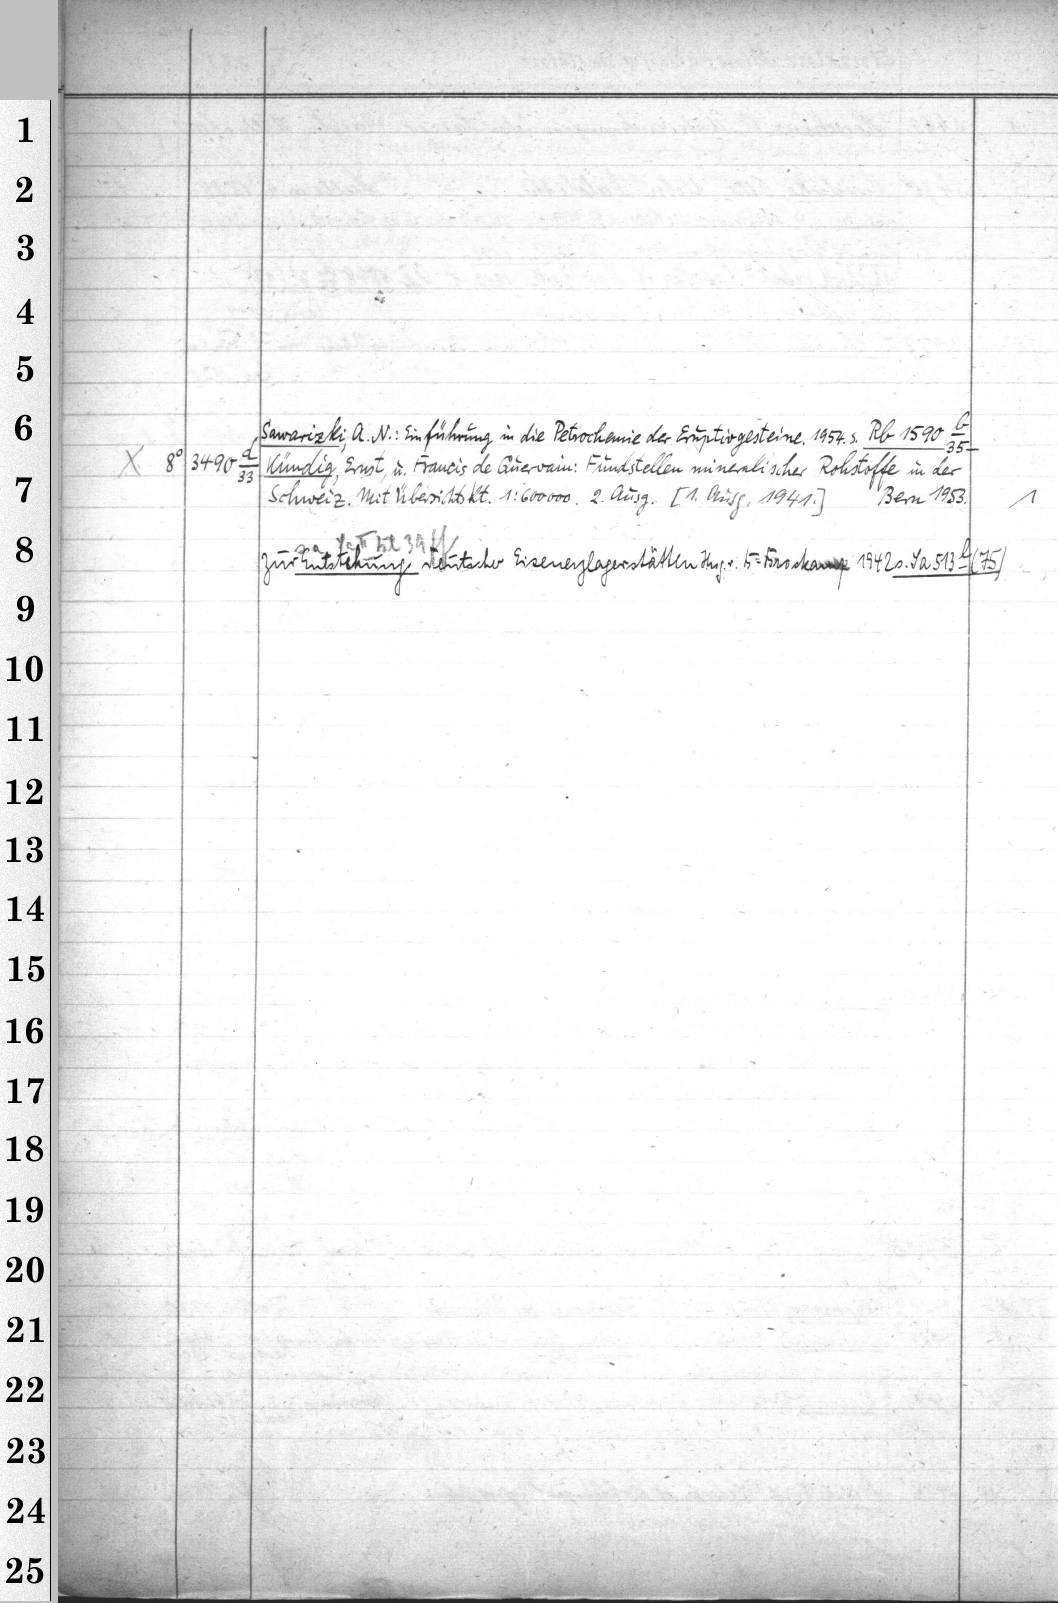 1
2
3
4
5
6
Sawarizki, A. N.: Einführung in die Petrochemie der Eruptivgesteine. 1954. s. Rb 1590 b/35
X 8° 3490 d/33 Kündig, Ernst, u. Francis de Quervain: Fundstellen mineralischer Rohstoffe in der
7
Schweiz. Mit Übersichtskt. 1:600000. 2. Ausg. [1. Ausg. 1941.] Bern 1953. 1
8
Zur Entstehung deutscher Eisenerzlagerstätten Hrsg. v. 1942 s. Ja 513 b (75)
9
10
11
12
13
14
15
16
17
18
19
20
21
22
23
24
25